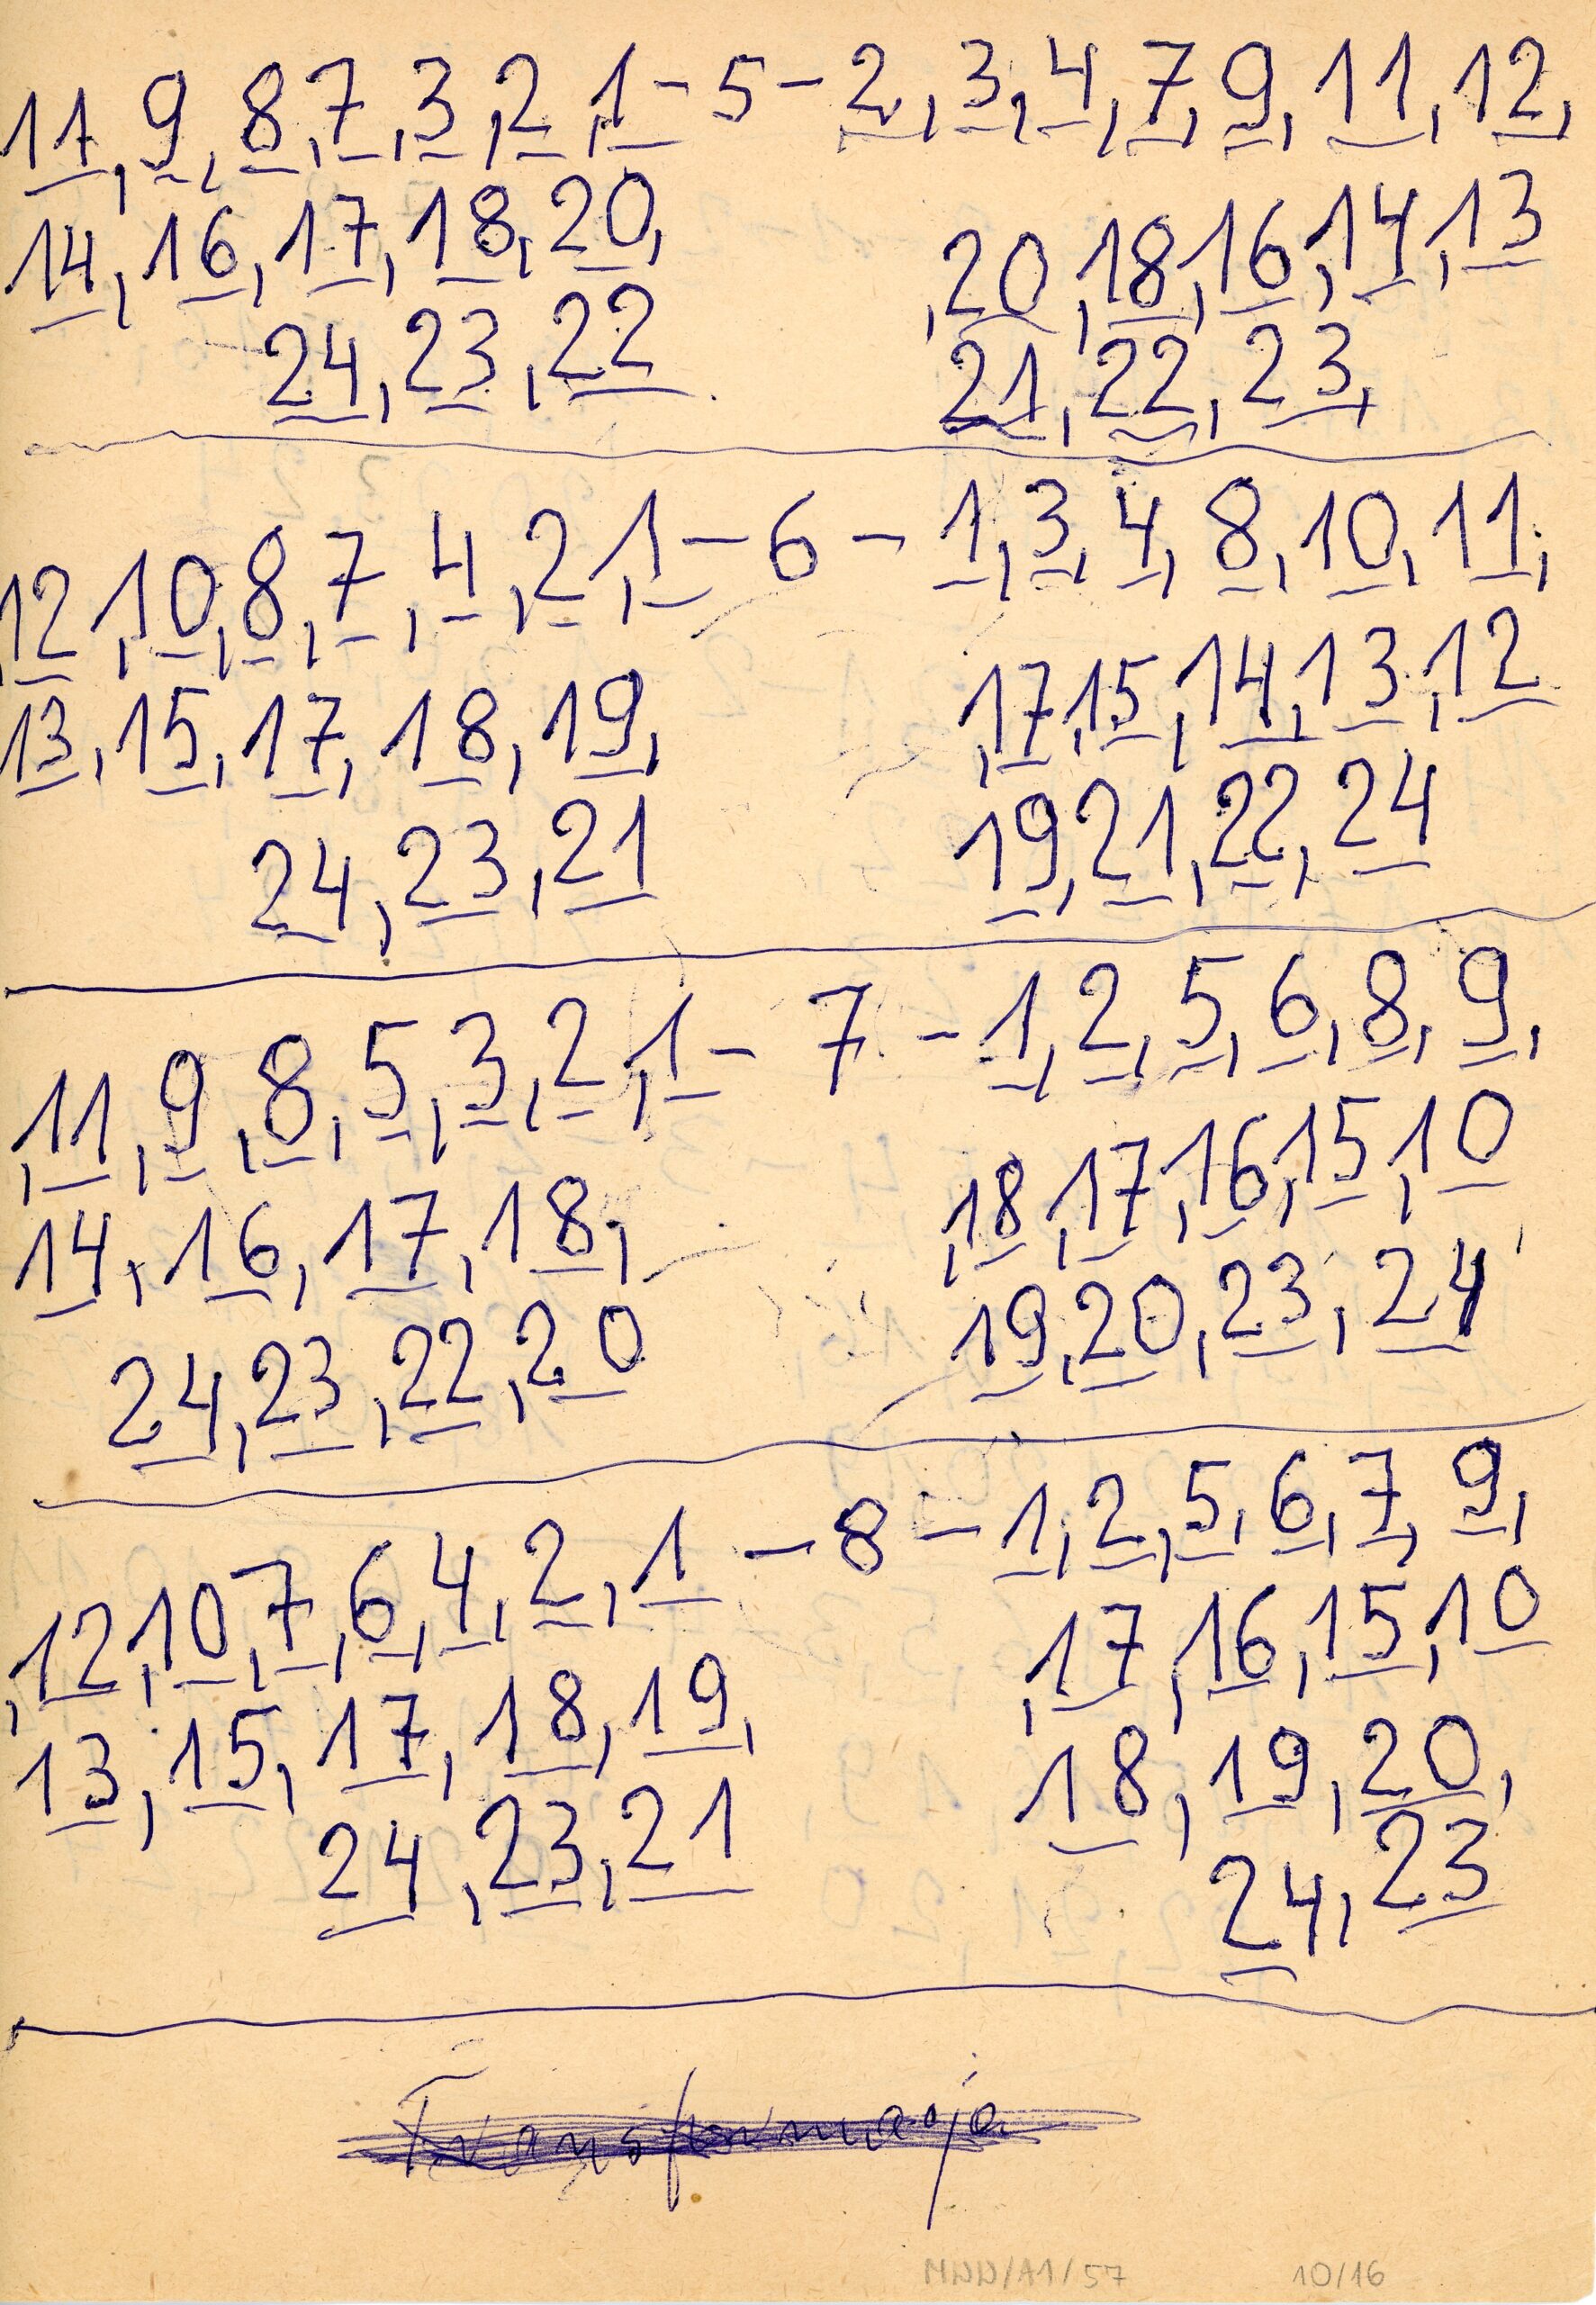 11, 9, 8, 7, 3, 2, 1 - 5 - 2, 3, 4, 7, 9, 11, 12,
14, 16, 17, 18, 20, , 20, 18, 16, 14, 13
24, 23, 22 21, 22, 23,
12, 10, 8, 7, 4, 2, 1 - 6 - 1, 3, 4, 8, 10, 11,
13, 15, 17, 18, 19, , 17, 15, 14, 13, 12
24, 23, 21 19, 21, 22, 24
, 11, 9, 8, 5, 3, 2, 1 - 7 - 1, 2, 5, 6, 8, 9,
14, 16, 17, 18, , 18, 17, 16, 15, 10
24, 23, 22, 20 19, 20, 23, 24
, 12, 10, 7, 6, 4, 2, 1 - 8 - 1, 2, 5, 6, 7, 9,
13, 15, 17, 18, 19, , 17, 16, 15, 10
24, 23, 21 18, 19, 20,
24, 23
Transformacja
10/16